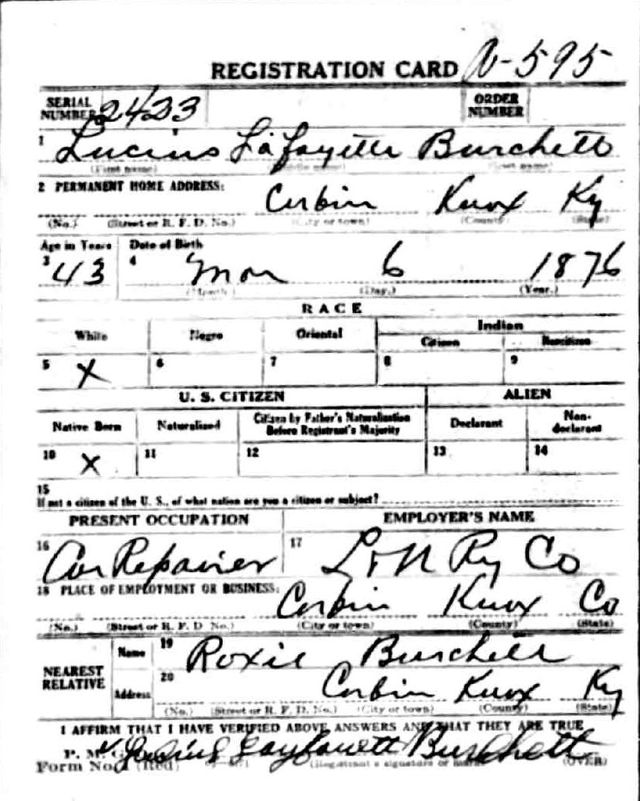 REGISTRATION CARD N-595
SERIAL NUMBER 2423 ORDER NUMBER
1 Lucius Lafayette Burchett
(First name) (Middle name) (Last name)
2 PERMANENT HOME ADDRESS: Corbin Knox Ky
(No.) (Street or R. F. D. No.) (City or town) (County) (State)
Age in Years Date of Birth
3 43 4 Mar 6 1876
(Month) (Day.) (Year.)
RACE
White Negro Oriental Indian
Citizen Noncitizen
5 X 6 7 8 9
U. S. CITIZEN ALIEN
Native Born Naturalized Citizen by Father's Naturalization Before Registrant's Majority Declarant Non-declarant
10 X 11 12 13 14
15
If not a citizen of the U. S., of what nation are you a citizen or subject?
PRESENT OCCUPATION EMPLOYER'S NAME
16 Car Repairer 17 L & N Ry Co
18 PLACE OF EMPLOYMENT OR BUSINESS: Corbin Knox Co
(No.) (Street or R. F. D. No.) (City or town) (County) (State)
NEAREST RELATIVE Name 19 Roxie Burchett
Address 20 Corbin Knox Ky
(No.) (Street or R. F. D. No.) (City or town) (County) (State)
I AFFIRM THAT I HAVE VERIFIED ABOVE ANSWERS AND THAT THEY ARE TRUE
P. M. G. O.
Form No. 1 (Red) Lucius Layfauett Burchett (Registrant's signature or mark) (OVER)